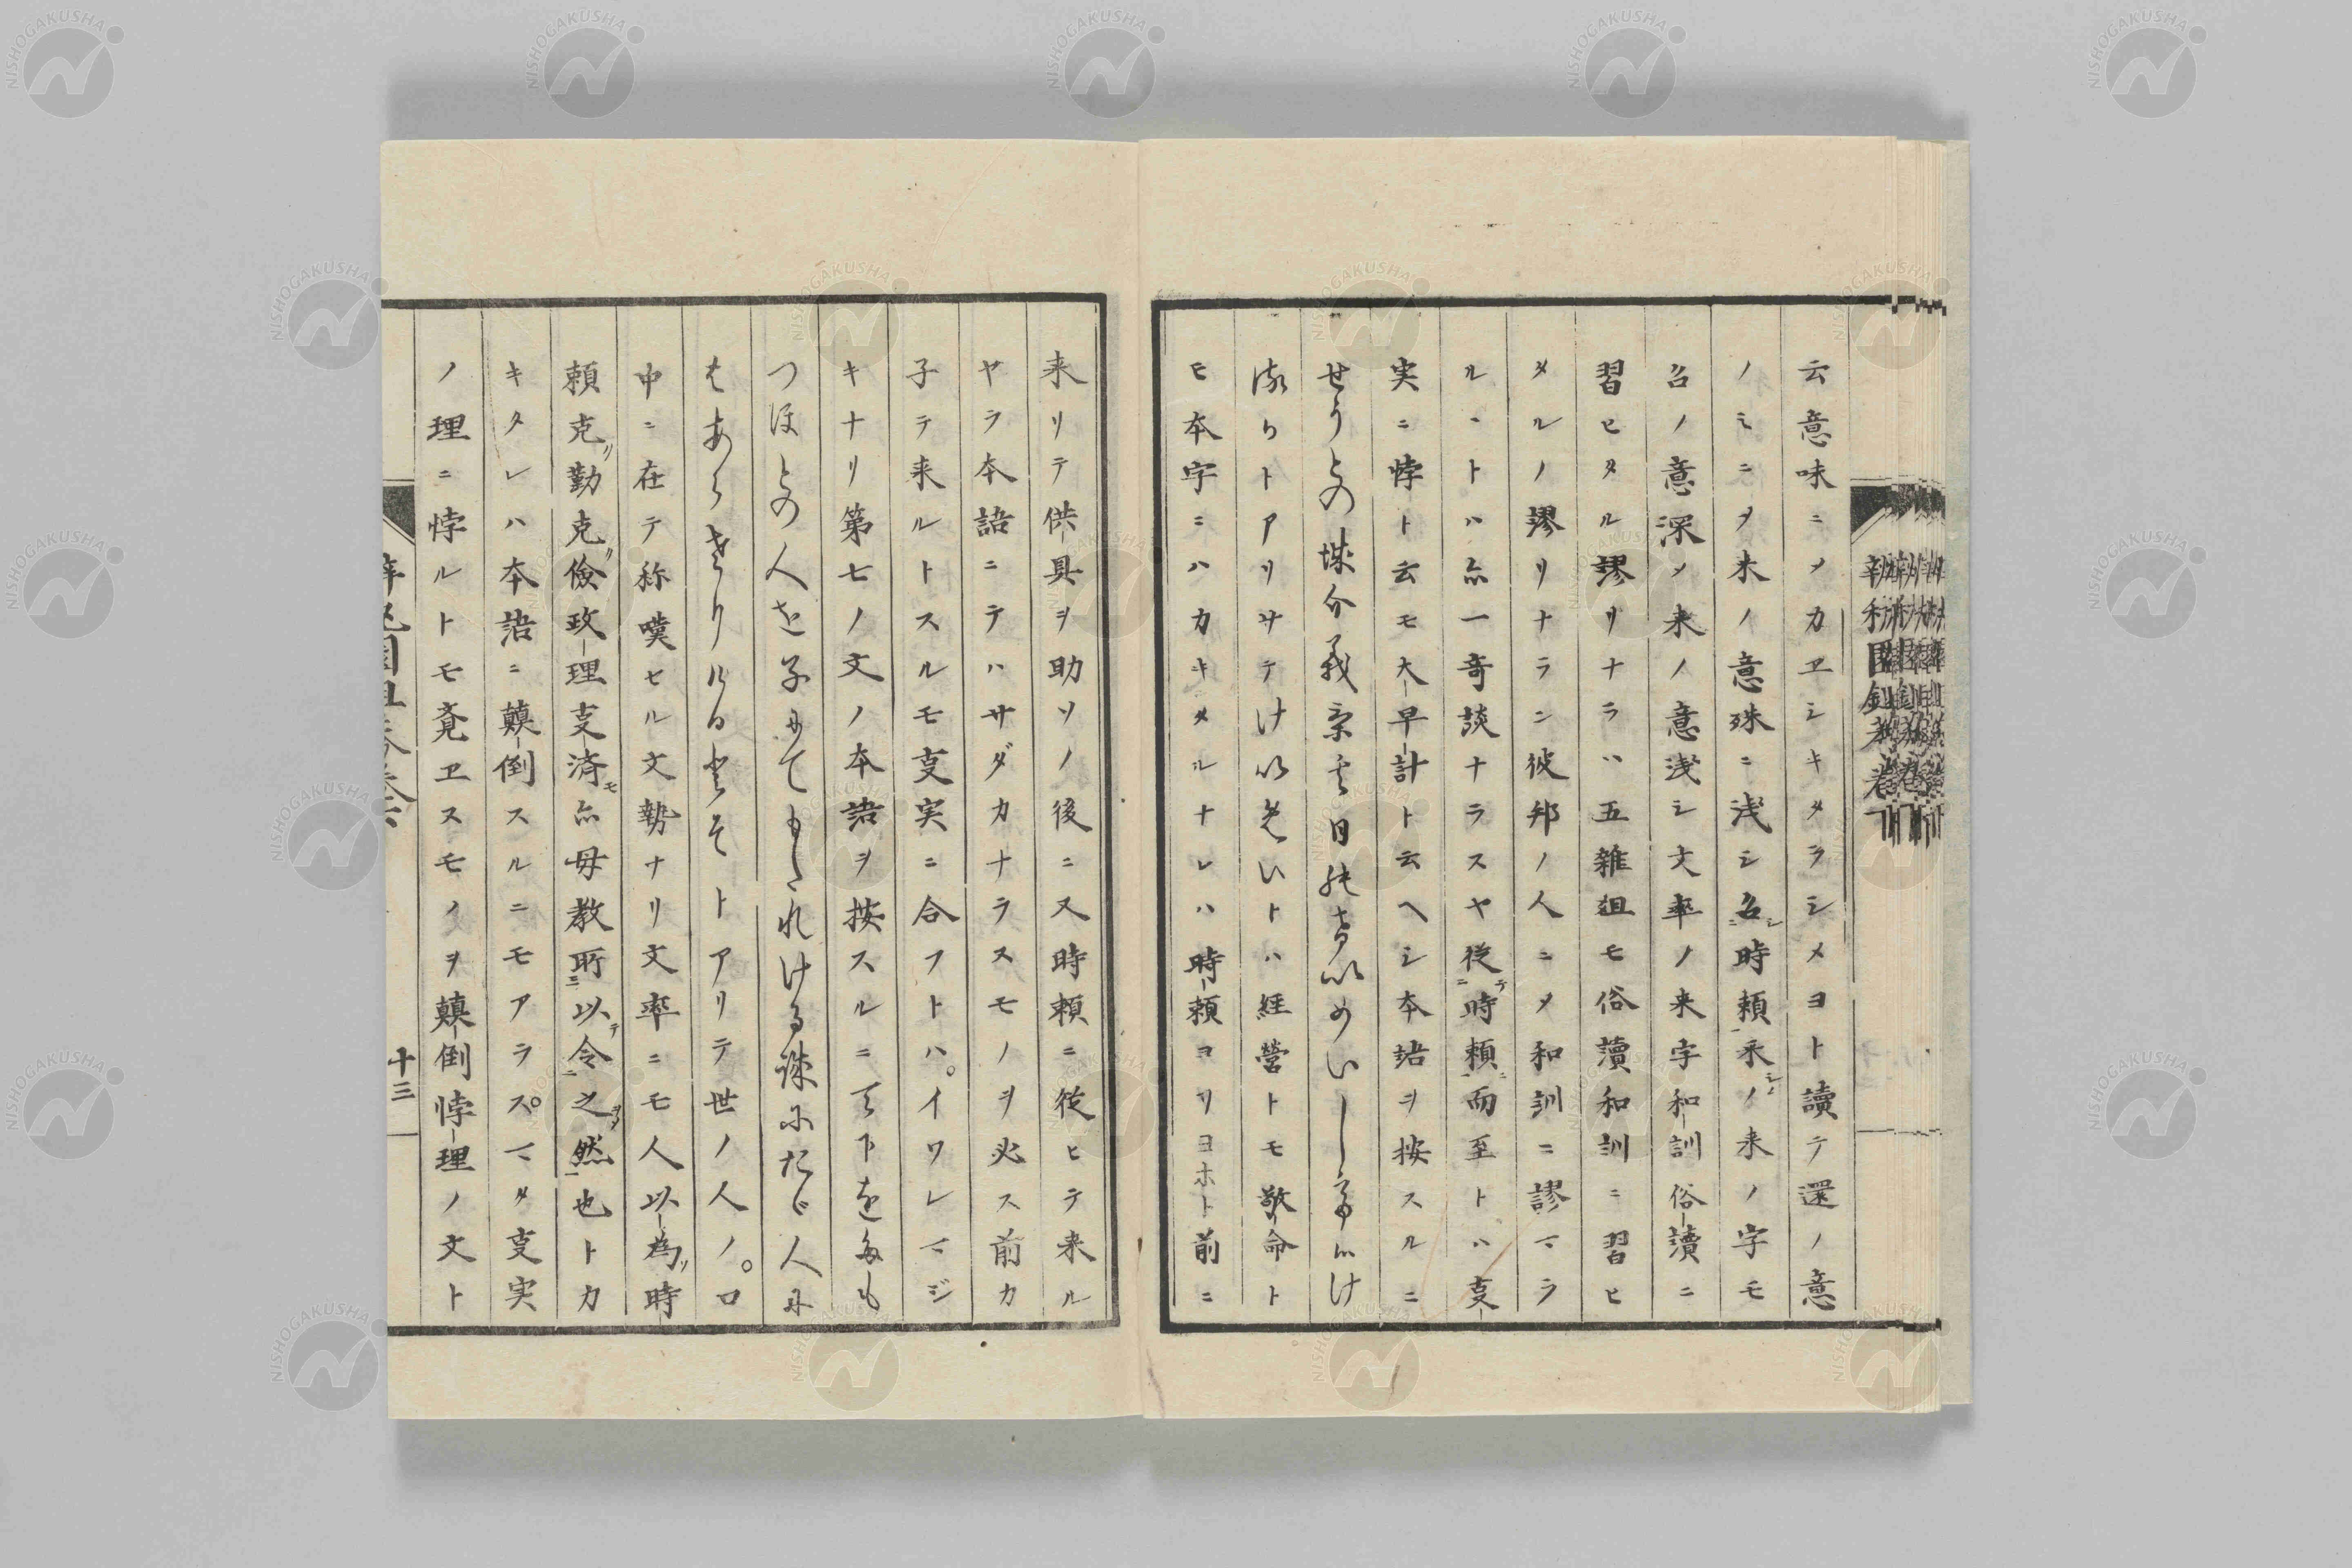 云意味ニメカヱシキタラシメヨト讀テ還ノ意
ノミニメ来ノ意殊ニ浅シ召シ時頼ニ来ノ来ノ字モ
召ノ意深メ来ノ意浅シ文率ノ来字和訓俗讀ニ
習ヒタル謬リナラハ五雜俎モ俗讀和訓ニ習ヒ
メルノ謬リナラン彼邦ノ人ニメ和訓ニ謬マラ
ルヽトハ亦一奇談ナラスヤ従テ時頼ニ而至トハ支
実ニ悖ト云モ大早計ト云ヘシ本語ヲ按スルニ
せうとの城介義景
トアリサテけいめいトハ経營トモ敬命ト
モ本字ニハカキメルナレハ時頼ヨリヨホト前ニ
来リテ供具ヲ助ソノ後ニ又時頼ニ従ヒテ来ル
ヤラ本語ニテハサダカナラスモノヲ必ス前カ
子テ来ルトスルモ支実ニ合フトハイワレマジ
キナリ第七ノ文ノ本語ヲ按スルニ天下をたも
つほとの人を子にてもたれける誠にたゞ人に
はあらさりけるとそトアリテ世ノ人ノ口
中ニ在テ称嘆セル文勢ナリ文率ニモ人以為時
頼克勤克儉政理支済モ亦母教所以令之然也トカ
キタレハ本語ニ顛倒スルニモアラスマタ支実
ノ理ニ悖ルトモ覚ヱスモノヲ顛倒悖理ノ文ト
十三